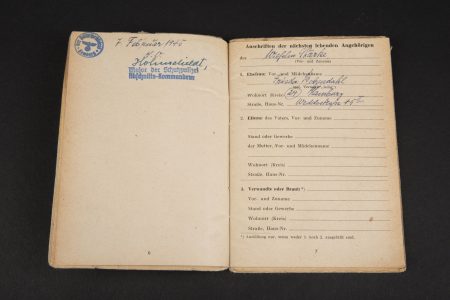 7. Februar 1945
Major der Schutzpolizei
Abschnitts-Kommandeur
6
Anschriften der nächsten lebenden Angehörigen
des
(Vor- und Zuname)
1. Ehefrau: Vor- und Mädchenname
Wohnort (Kreis) (24) Hamburg
Straße, Haus-Nr.
2. Eltern: des Vaters, Vor- und Zuname
Stand oder Gewerbe
der Mutter, Vor- und Mädchenname
Wohnort (Kreis)
Straße, Haus-Nr.
3. Verwandte oder Braut*):
Vor- und Zuname
Stand oder Gewerbe
Wohnort (Kreis)
Straße, Haus-Nr.
*) Ausfüllung nur, wenn weder 1. noch 2. ausgefüllt sind.
7